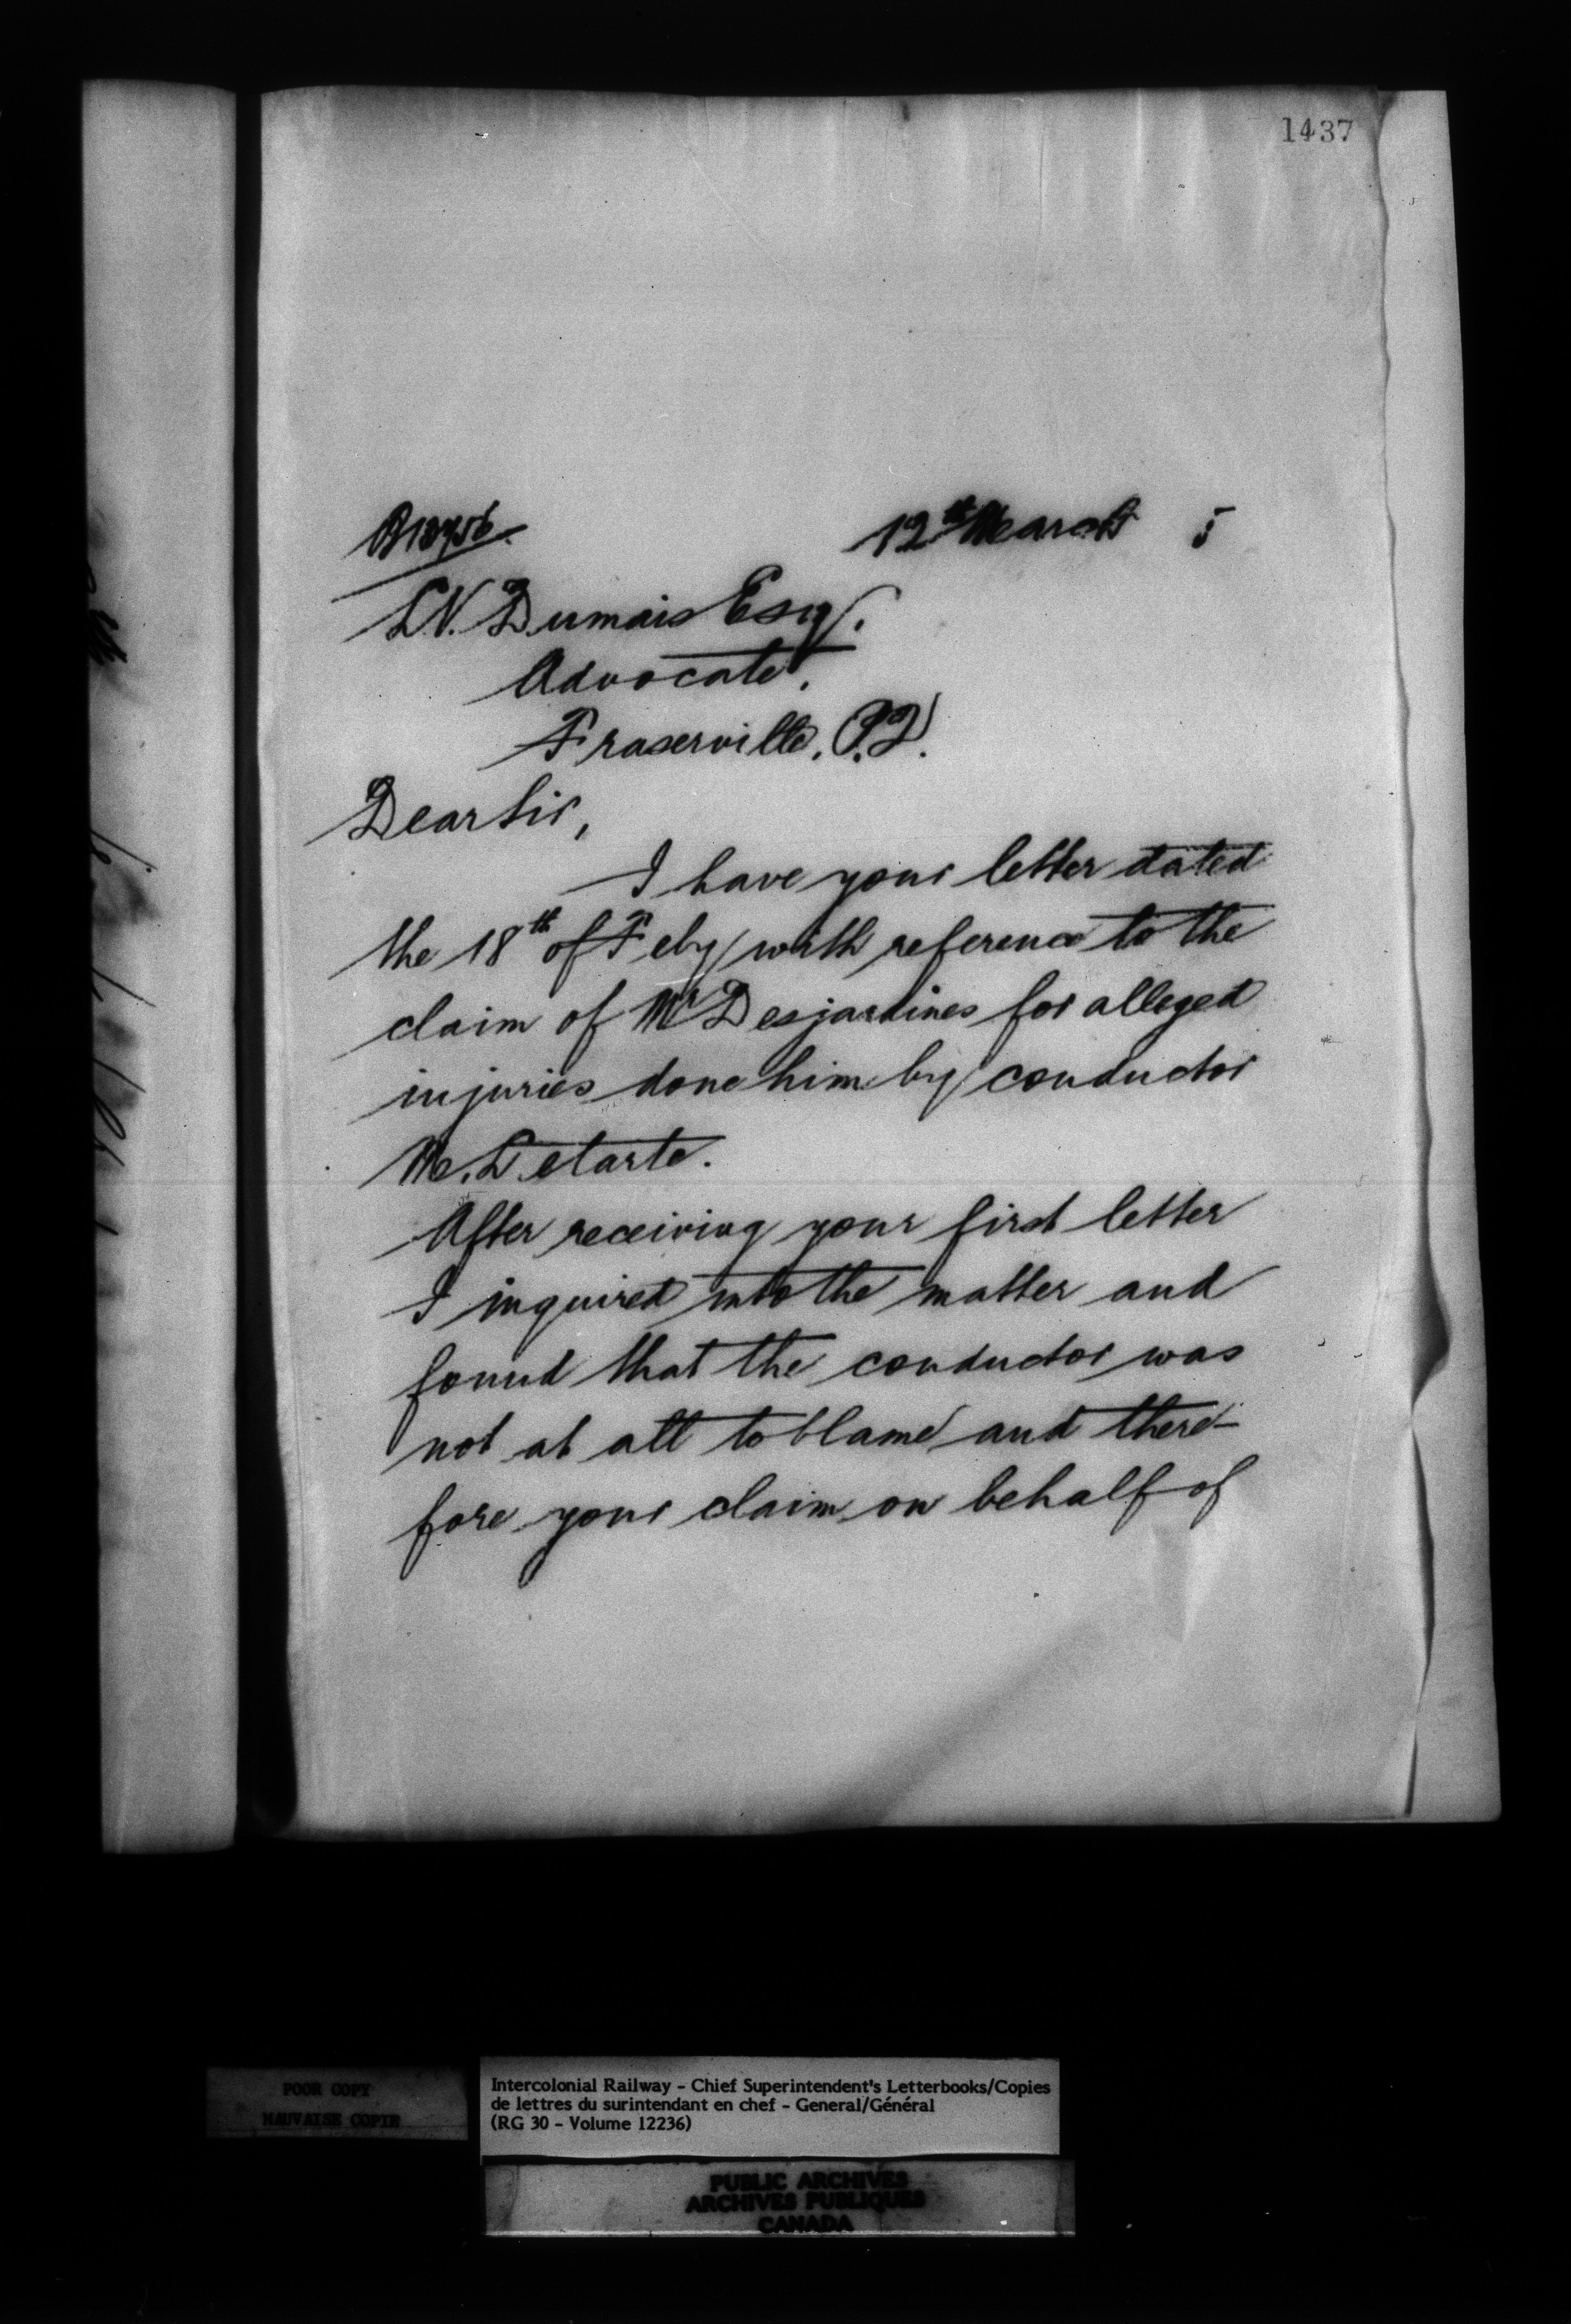 1437
12th March 5
L.N. Dumais Esq.
Advocate.
Fraserville, P.Q.
Dear Sir,
I have your letter dated
the 18th of Feby with reference to the
claim of Mr Desjardines for alleged
injuries done him by conductor
M. Letarte.
After receiving your first letter
I inquired into the matter and
found that the conductor was
not at all to blame and there-
fore your claim on behalf of
POOR COPY
MAUVAISE COPIE
Intercolonial Railway - Chief Superintendent's Letterbooks/Copies
de lettres du surintendant en chef - General/Général
(RG 30 - Volume 12236)
PUBLIC ARCHIVES
ARCHIVES PUBLIQUES
CANADA